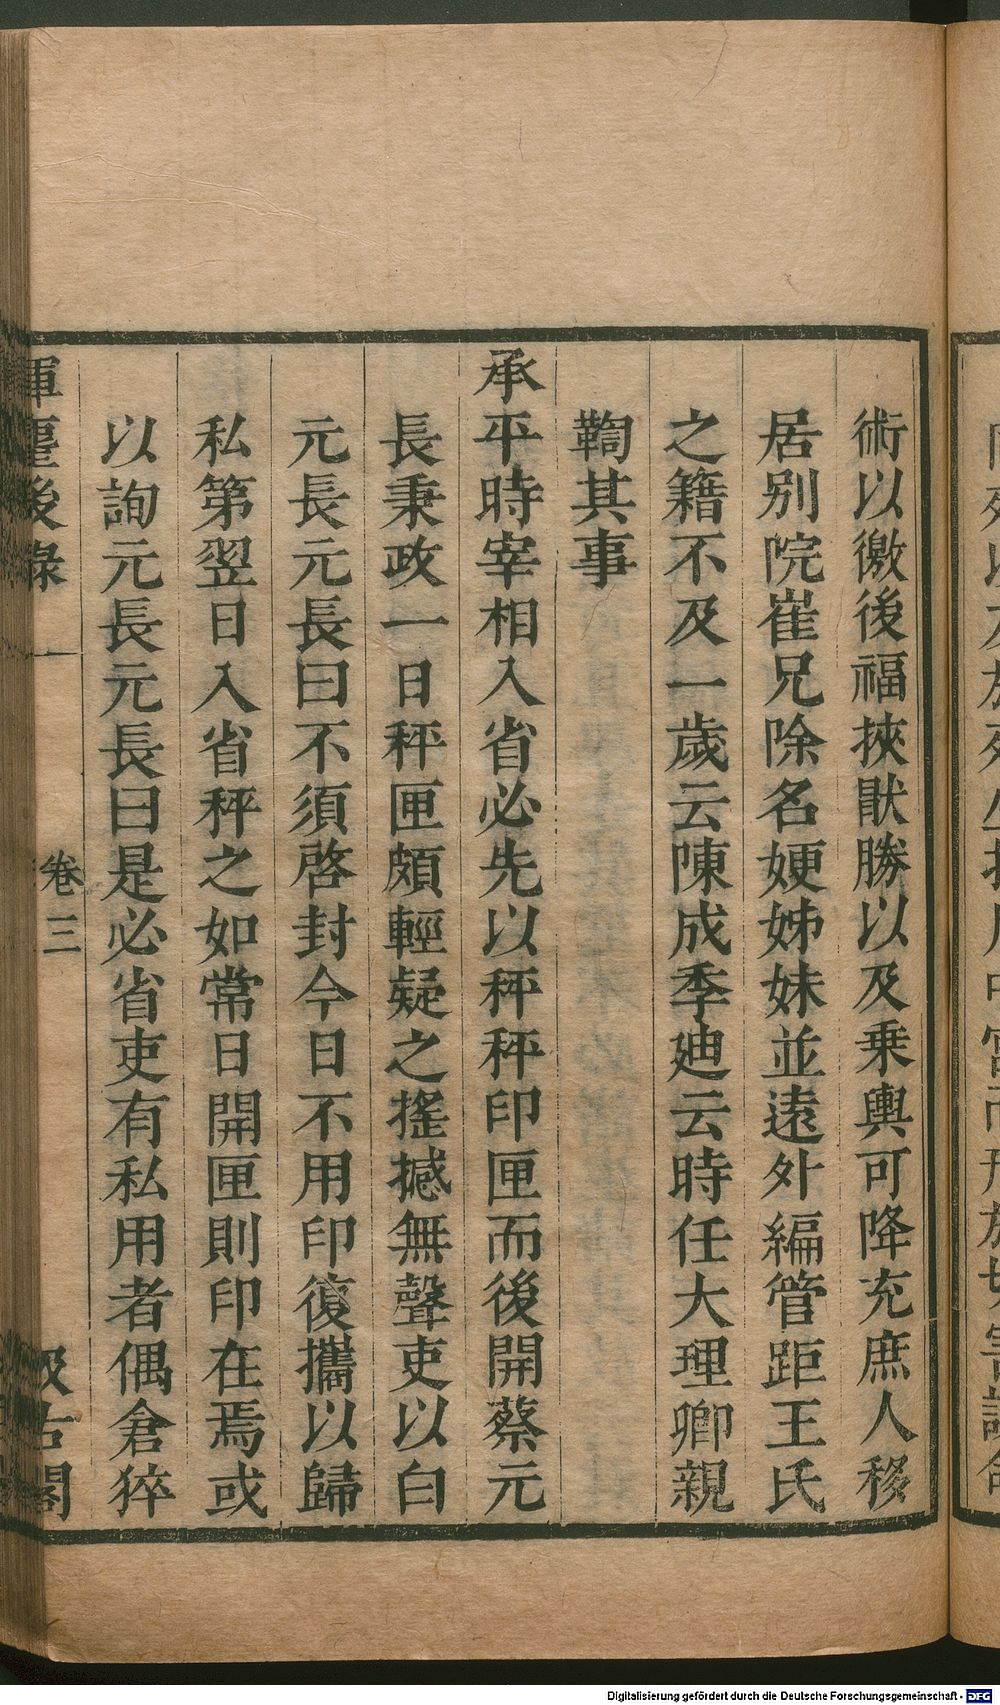 術以徼後福挾猒勝以及乗輿可降充庶人移
居别院崔兄除名㛹姊妹並遠外編管距王氏
之籍不及一歲云陳成季廸云時任大理卿親
鞫其事
承平時宰相入省必先以秤秤印匣而後開蔡元
長秉政一日秤匣頗輕疑之搖撼無聲吏以白
元長元長曰不須啓封今日不用印復攜以歸
私第翌日入省秤之如常日開匣則印在焉或
以詢元長元長曰是必省吏有私用者偶倉猝
揮麈後錄 卷三 汲古閣
Digitalisierung gefördert durch die Deutsche Forschungsgemeinschaft - DFG